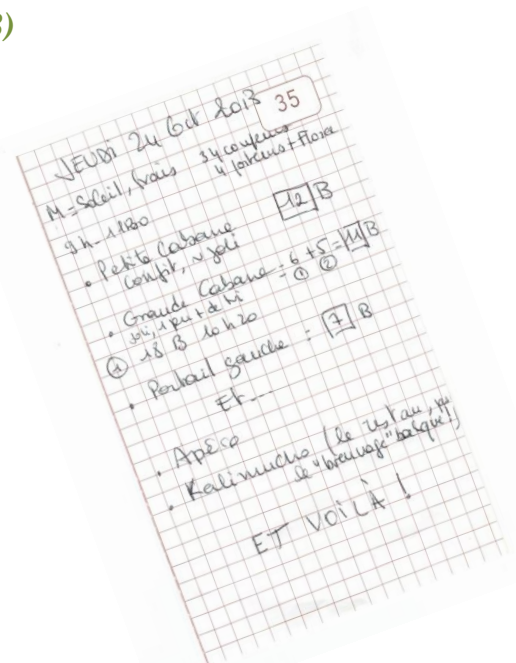 3)
35
JEUDI 24 Oct 2013
M = Soleil, frais 34 coupeurs
4 porteurs + Flora
9h - 11h30
• Petite Cabane 12 B
confit, joli
• Grande Cabane = 6 + 5 = 11 B
① ②
joli, 1 peu + de tri
18 B 10h20
• Portail gauche = 7 B
Et....
• Apéro
• Kalimucho (le
le "breuvage" basque!)
ET VOILÀ !